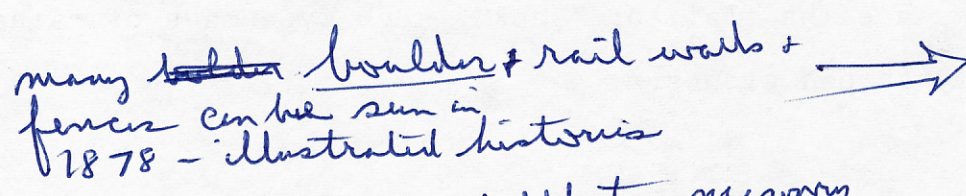 many boulder & rail walls +
fences can be seen in
1878 - illustrated histories